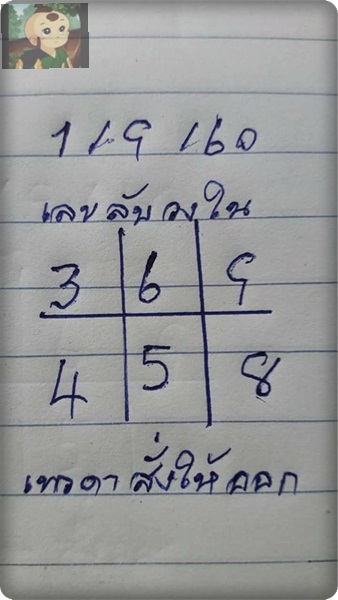 1/9/60
เลขลับวงใน
3 6 9
4 5 8
เทวดาสั่งให้ออก